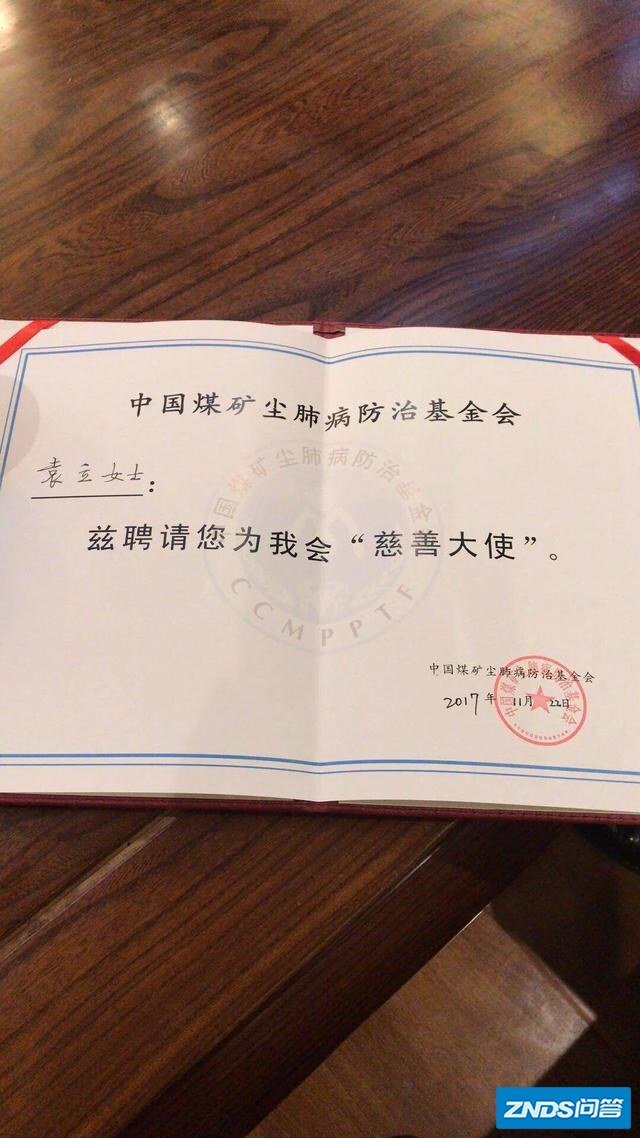 中国煤矿尘肺病防治基金会
袁立女士：
兹聘请您为我会“慈善大使”。
中国煤矿尘肺病防治基金
CCMPPTF
中国煤矿尘肺病防治基金会
2017年11月22日
中国煤矿尘肺病防治基金会
ZNDS问答